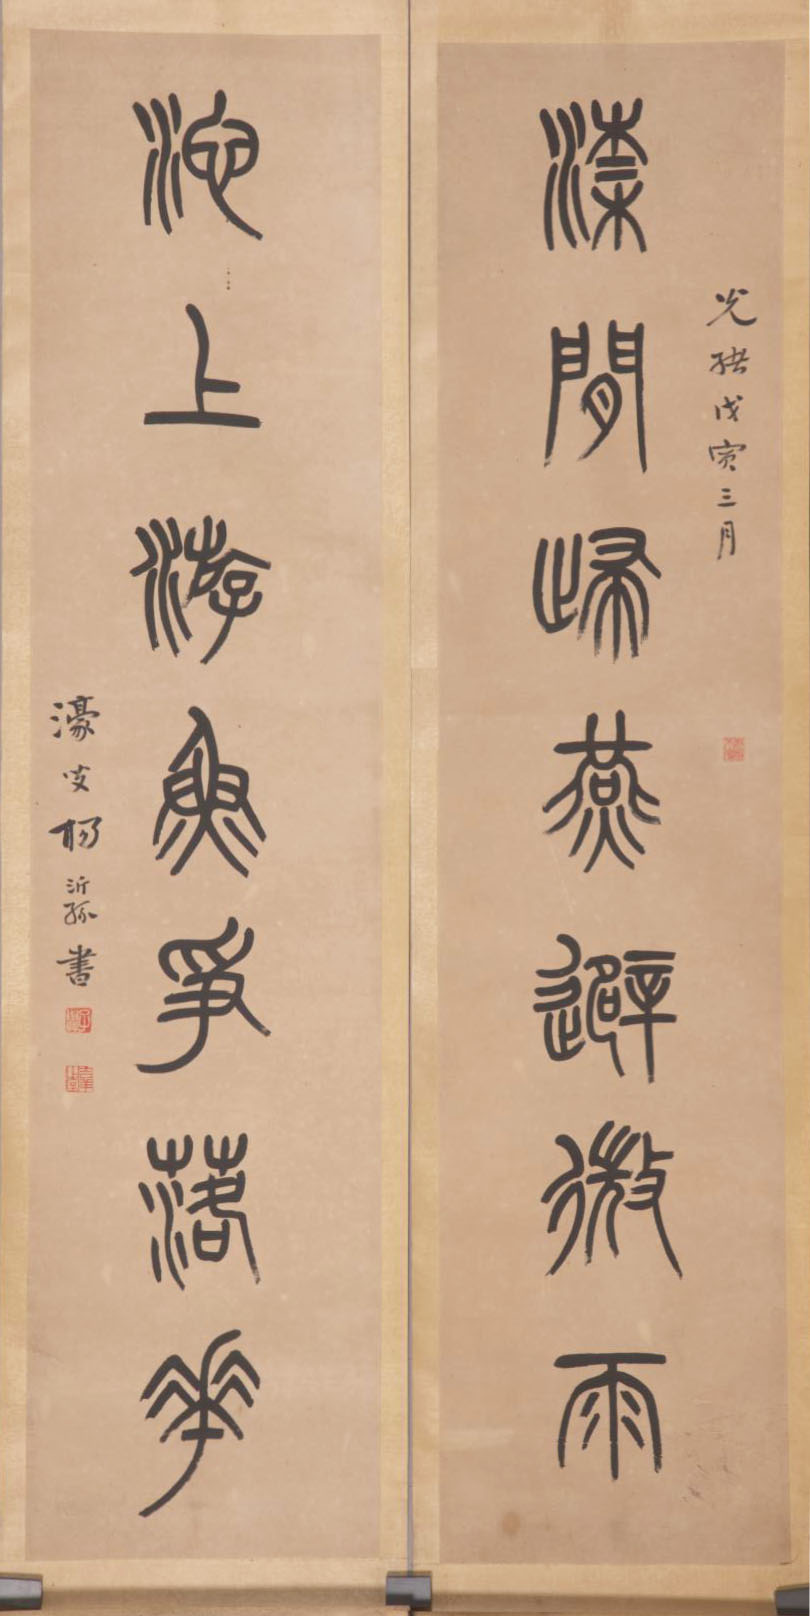 光緒戊寅三月
梁間歸燕避微雨
池上游魚爭落花
濠叟楊沂孫書